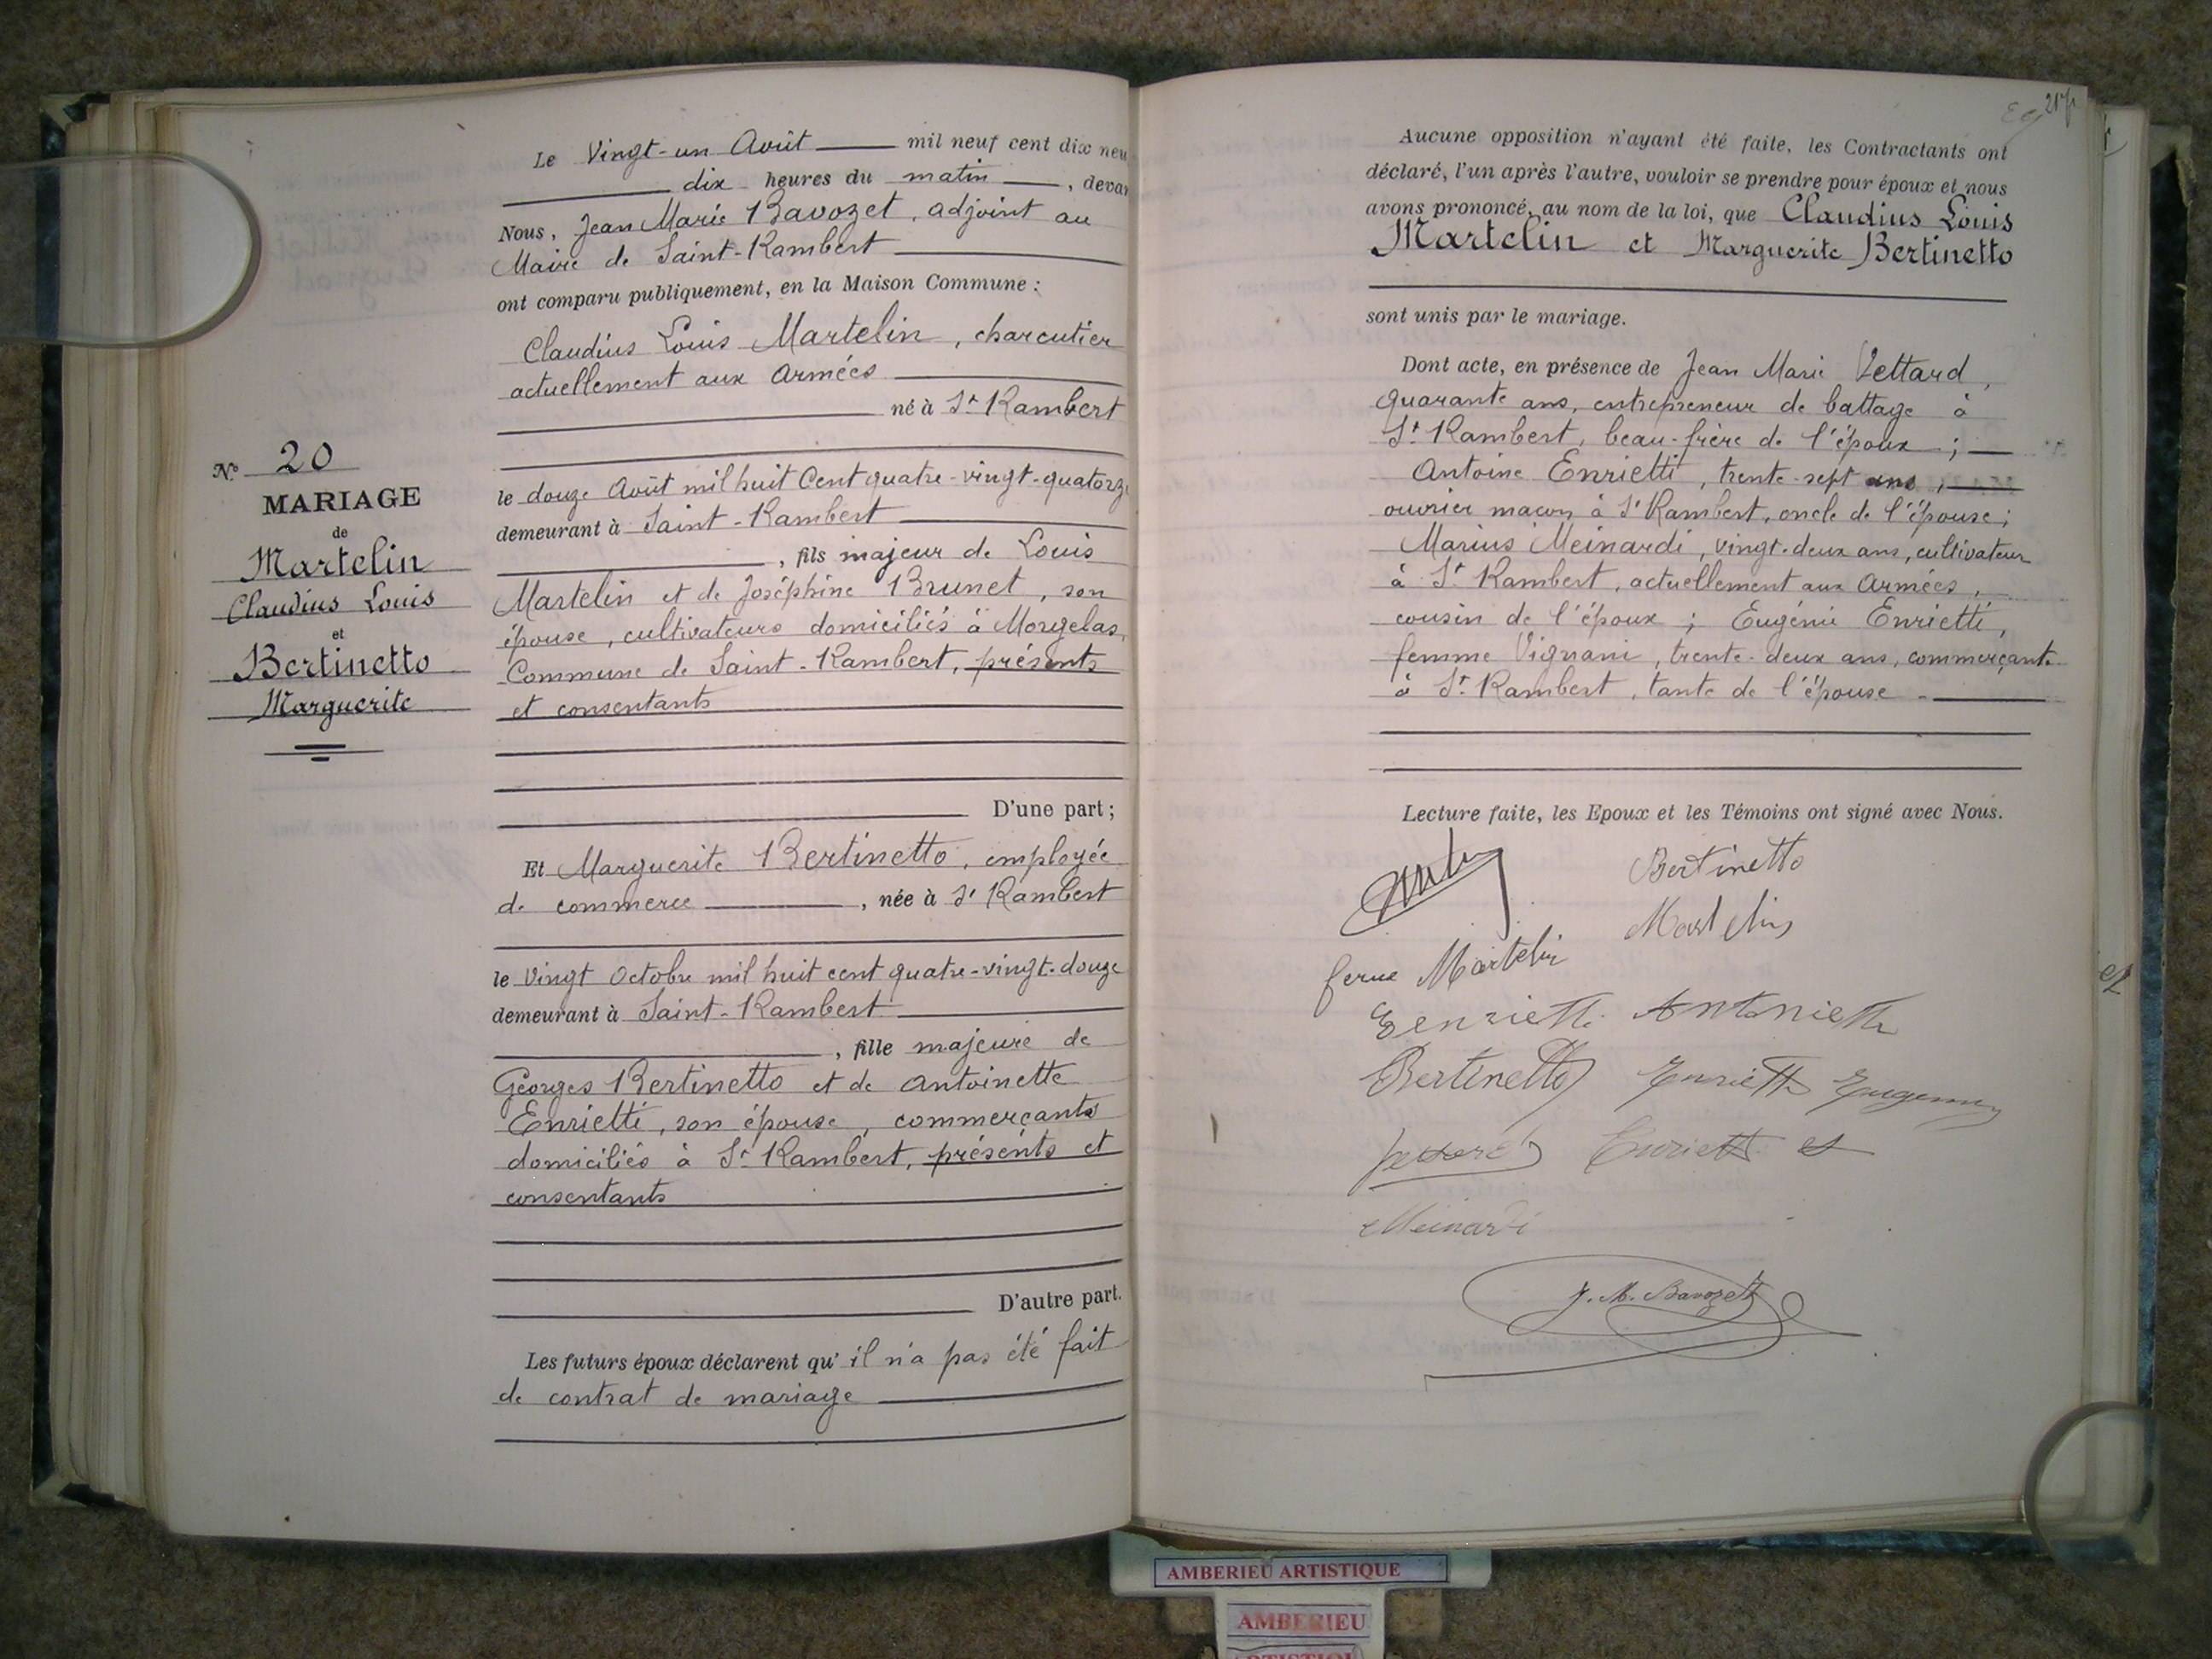 Le Vingt-un Août mil neuf cent dix neu
dix heures du matin, devan
Nous, Jean Marie Bavozet, adjoint au
Maire de Saint-Rambert
ont comparu publiquement, en la Maison Commune :
Claudius Louis Martelin, charcutier
actuellement aux Armées
né à St Rambert
le douze Août mil huit Cent quatre-vingt-quatorz
demeurant à Saint-Rambert
, fils majeur de Louis
Martelin et de Joséphine Brunet, son
épouse, cultivateurs domiciliés à Morgelas,
Commune de Saint-Rambert, présents
et consentants
D'une part ;
Et Marguerite Bertinetto, employée
de commerce, née à St Rambert
le Vingt Octobre mil huit cent quatre-vingt-douze
demeurant à Saint-Rambert
, fille majeure de
Georges Bertinetto et de Antoinette
Enrietti, son épouse, commerçants
domiciliés à St Rambert, présents et
consentants
D'autre part.
Les futurs époux déclarent qu'il n'a pas été fait
de contrat de mariage
N° 20
MARIAGE
de
Martelin
Claudius Louis
et
Bertinetto
Marguerite
217
Aucune opposition n'ayant été faite, les Contractants ont
déclaré, l'un après l'autre, vouloir se prendre pour époux et nous
avons prononcé, au nom de la loi, que Claudius Louis
Martelin et Marguerite Bertinetto
sont unis par le mariage.
Dont acte, en présence de Jean Marie Vettard,
quarante ans, entrepreneur de battage à
St Rambert, beau-frère de l'époux ;
Antoine Enrietti, trente-sept ans,
ouvrier maçon à St Rambert, oncle de l'épouse ;
Marius Meinardi, vingt-deux ans, cultivateur
à St Rambert, actuellement aux Armées,
cousin de l'époux ; Eugénie Enrietti,
femme Vignani, trente-deux ans, commerçante
à St Rambert, tante de l'épouse.
Lecture faite, les Epoux et les Témoins ont signé avec Nous.
Bertinetto
Martelin
feme Martelin
Enrietti Antoniette
Bertinetto Enrietti Eugenie
Enrietti
Meinardi
J. M. Bavozet
AMBERIEU ARTISTIQUE
AMBERIEU
ARTISTIQU